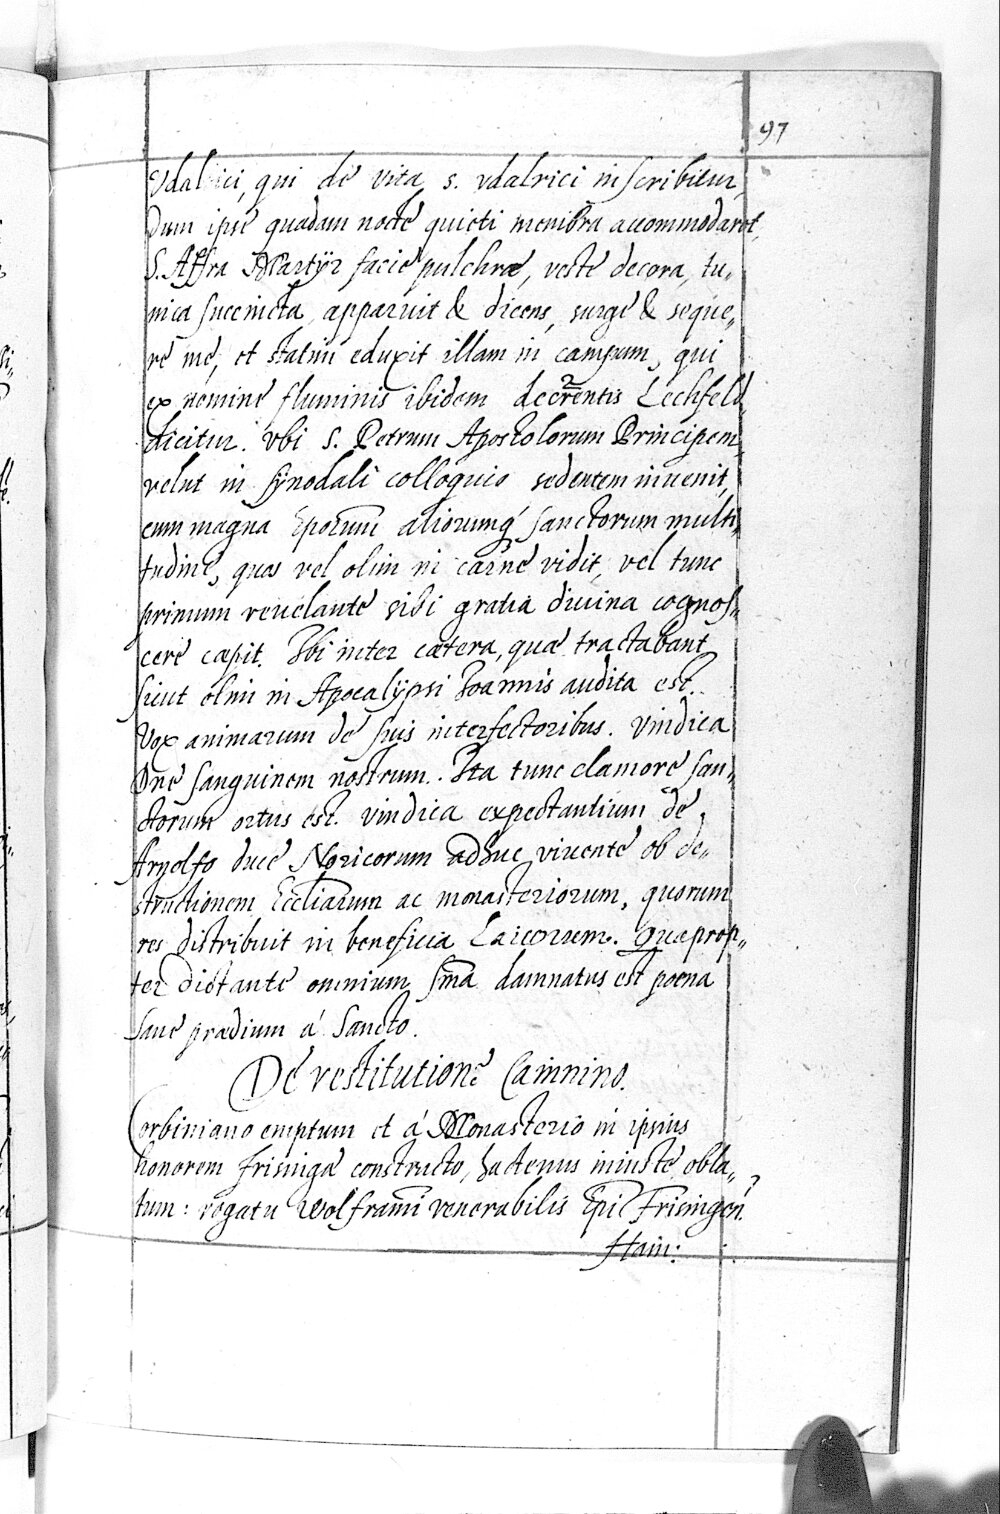 97
Udalrici, qui de vita S. vdalrici inscribitur,
Dum ipse quadam nocte quieti membra accommodaret,
S. Affra Martÿr facie pulchræ, veste decora, tu„
nica succincta, apparuit & dicens, surge & seque„
re me, et statim eduxit illam in campum, qui
ex nomine fluminis ibidem decrentis Lechfeld
dicitur. Vbi S. Petrum Apostolorum Principem
velut in sÿnodali colloquio sedentem inuenit,
cum magna Eporum aliorumq́ sanctorum multi„
tudine, quos vel olim in carne vidit, vel tunc
primum reuelante sibi gratia diuina cognos„
cere cæpit. Ibi inter cætera, quæ tractabant
sicut olim in Apocalÿpsi Joannis audita est.
Vox animarum de suis interfectoribus. Vindica
Dne sanguinem nostrum. Ita tunc clamore san„
ctorum ortus est. vindica expectantium de
Arnolfo duce Noricorum adhuc viuente ob de„
structionem Eccliarum ac monasteriorum, quorum
res distribuit in beneficia Laicorum. Quaprop„
ter dictante omnium sma damnatus est poena
sane prædium á Sancto.
De restitutione Camino.
Corbiniano emptum et á Monasterio in ipsius
honorem frisingæ constructo, hactenus iniuste obla„
tum: rogatu Wolframi venerabilis Epi Frisingen.
Hain: